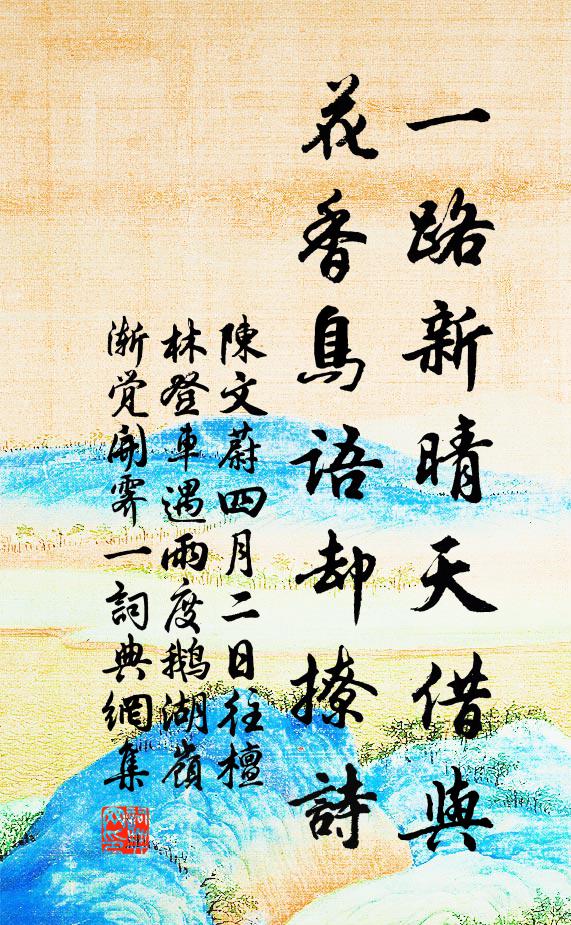 一路新晴天借與
花香鳥語却撩詩
陳文蔚四月二日往檀
林登車遇雨度鵝湖嶺
漸觉開霽一詞典網集